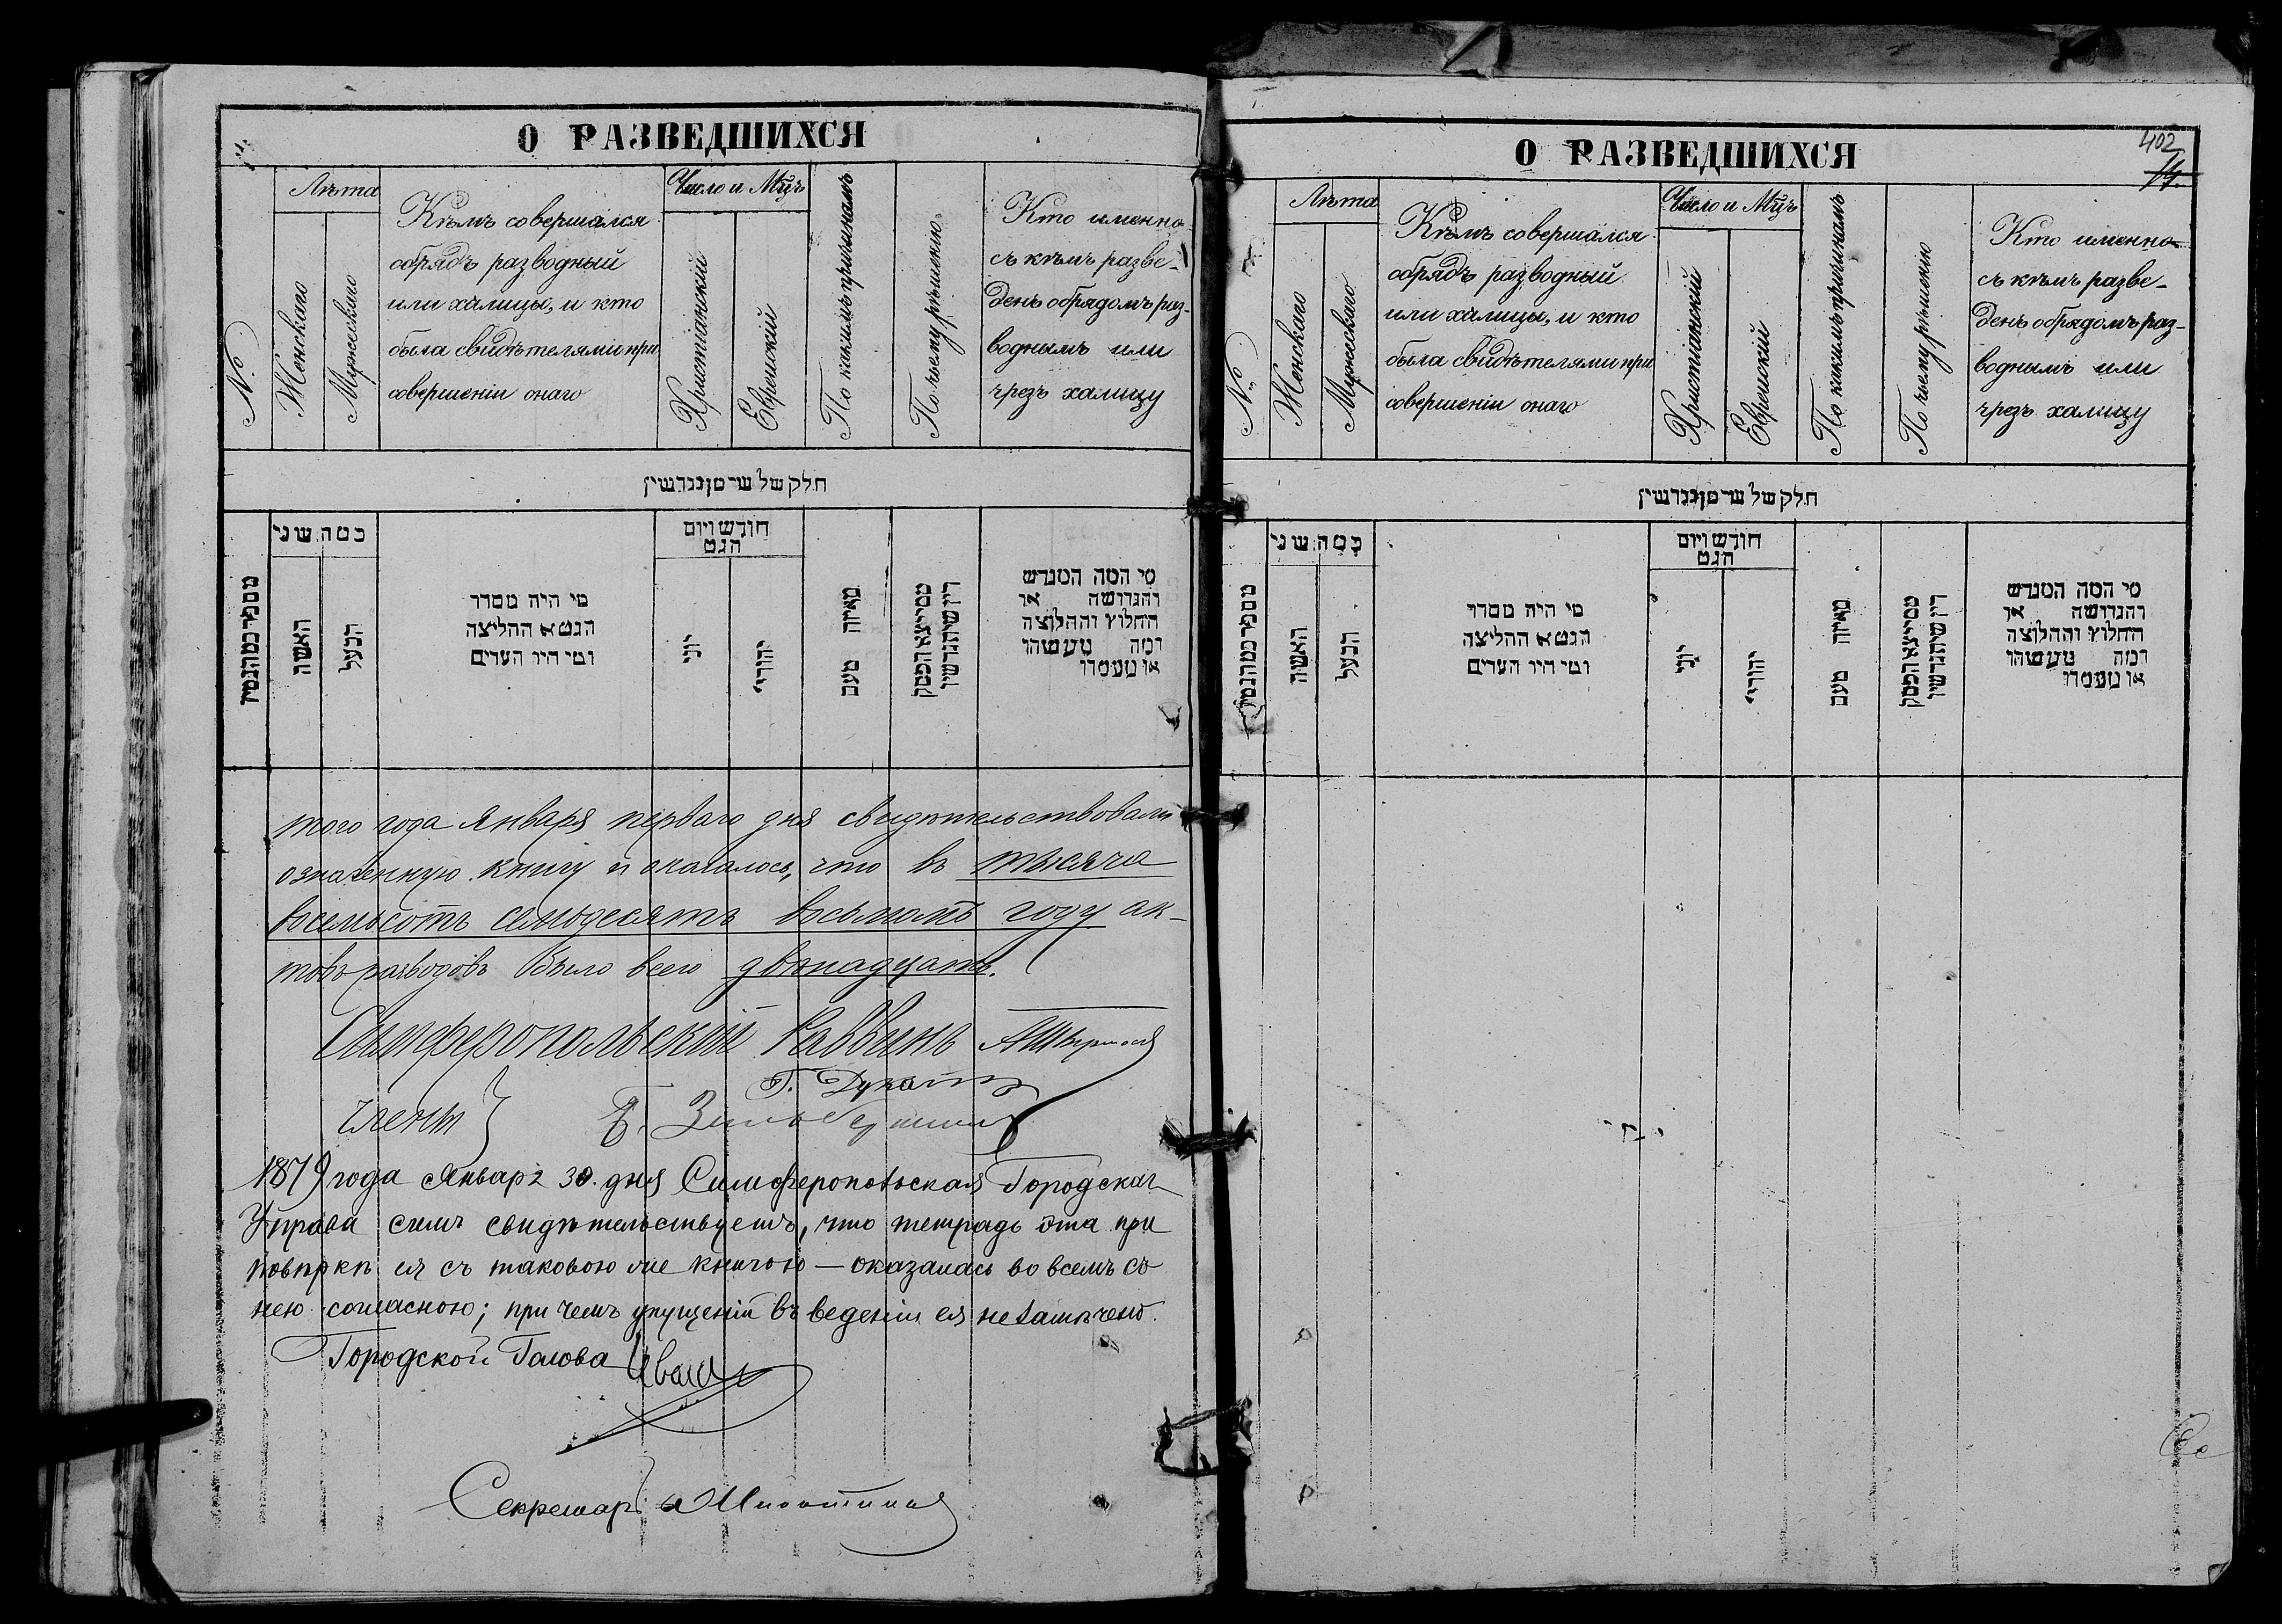 О РАЗВЕДШИХСЯ
№
Лѣта
Женскаго
Мужескаго
Кѣмъ совершался
обрядъ разводный
или халицы, и кто
была свидѣтелями при
совершеніи онаго
Число и Мц͠ъ
Христіанскій
Еврейскій
По какимъ причинамъ
По чьему рѣшенію
Кто именно
съ кѣмъ разве-
денъ обрядомъ раз-
воднымъ или
чрезъ халицу
כמה שני
האשה
הבעל
מי היה מסדר
הגט א ההליצה
ומי היו העדים
חודש ויום
הגט
יוני
יהודי
מאיזה טעם
מי המה המגרש
והגרושה או
החלוץ וההלוצה
ומה מעשהו
או מעמדו
того года Января перваго дня свидѣтельствовали
означенную книгу и оказалось, что въ тысяча
восемьсотъ семьдесятъ восьмомъ году ак-
товъ разводовъ было всего двѣнадцать.
Симферопольскій Раввинъ
Г. Дукатъ
члены
1879 года Января 30. дня Симферопольская Городская
Управа симъ свидѣтельствуетъ, что тетрадь эта при
повѣркѣ ея съ таковою же книгою — оказалась во всемъ съ
нею согласною; при чемъ упущеній въ веденіи ея не замѣчено.
Городской Голова Иванъ
Секретарь
О РАЗВЕДШИХСЯ
402
14.
№
Лѣта
Женскаго
Мужескаго
Кѣмъ совершался
обрядъ разводный
или халицы, и кто
была свидѣтелями при
совершеніи онаго
Число и Мц͠ъ
Христіанскій
Еврейскій
По какимъ причинамъ
По чьему рѣшенію
Кто именно
съ кѣмъ разве-
денъ обрядомъ раз-
воднымъ или
чрезъ халицу
כמה שני
האשה
הבעל
מי היה מסדר
הגט א ההליצה
ומי היו העדים
חודש ויום
הגט
יוני
יהודי
מאיזה טעם
מי המה המגרש
והגרושה או
החלוץ וההלוצה
ומה מעשהו
או מעמדו